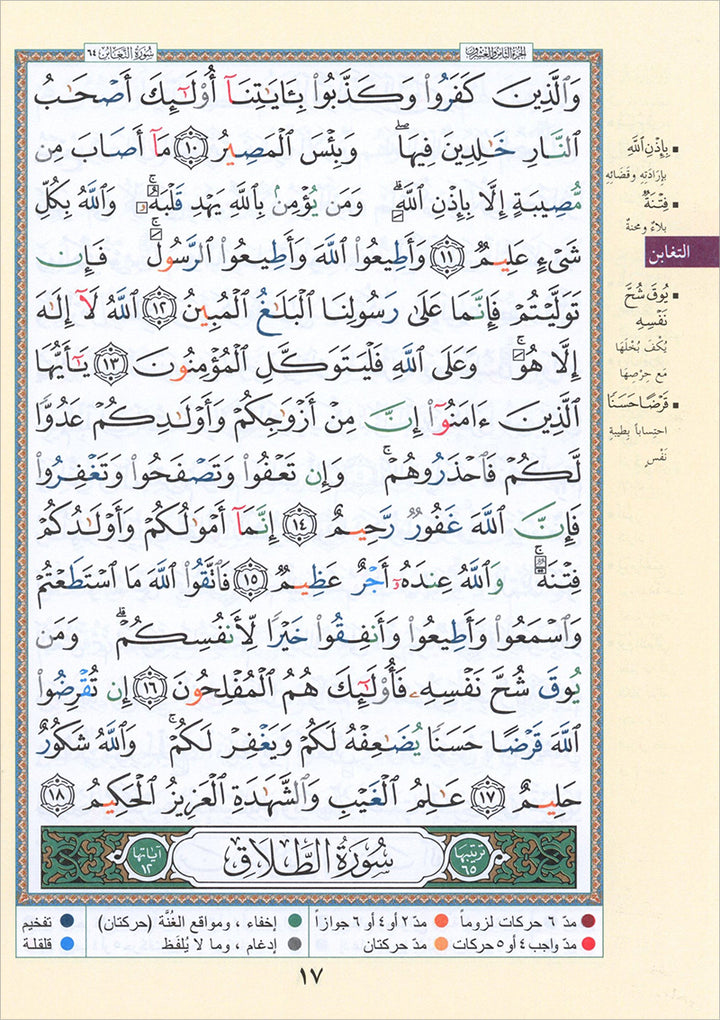 الجزء الثامن والعشرون
سورة التغابن ٦٤
وَٱلَّذِينَ كَفَرُوا۟ وَكَذَّبُوا۟ بِـَٔايَٰتِنَآ أُو۟لَٰٓئِكَ أَصْحَٰبُ
ٱلنَّارِ خَٰلِدِينَ فِيهَا ۖ وَبِئْسَ ٱلْمَصِيرُ ١٠ مَآ أَصَابَ مِن
مُّصِيبَةٍ إِلَّا بِإِذْنِ ٱللَّهِ ۗ وَمَن يُؤْمِنۢ بِٱللَّهِ يَهْدِ قَلْبَهُۥ ۚ وَٱللَّهُ بِكُلِّ
شَىْءٍ عَلِيمٌ ١١ وَأَطِيعُوا۟ ٱللَّهَ وَأَطِيعُوا۟ ٱلرَّسُولَ ۚ فَإِن
تَوَلَّيْتُمْ فَإِنَّمَا عَلَىٰ رَسُولِنَا ٱلْبَلَٰغُ ٱلْمُبِينُ ١٢ ٱللَّهُ لَآ إِلَٰهَ
إِلَّا هُوَ ۚ وَعَلَى ٱللَّهِ فَلْيَتَوَكَّلِ ٱلْمُؤْمِنُونَ ١٣ يَٰٓأَيُّهَا
ٱلَّذِينَ ءَامَنُوٓا۟ إِنَّ مِنْ أَزْوَٰجِكُمْ وَأَوْلَٰدِكُمْ عَدُوًّا
لَّكُمْ فَٱحْذَرُوهُمْ ۚ وَإِن تَعْفُوا۟ وَتَصْفَحُوا۟ وَتَغْفِرُوا۟
فَإِنَّ ٱللَّهَ غَفُورٌ رَّحِيمٌ ١٤ إِنَّمَآ أَمْوَٰلُكُمْ وَأَوْلَٰدُكُمْ
فِتْنَةٌ ۚ وَٱللَّهُ عِندَهُۥٓ أَجْرٌ عَظِيمٌ ١٥ فَٱتَّقُوا۟ ٱللَّهَ مَا ٱسْتَطَعْتُمْ
وَٱسْمَعُوا۟ وَأَطِيعُوا۟ وَأَنفِقُوا۟ خَيْرًا لِّأَنفُسِكُمْ ۗ وَمَن
يُوقَ شُحَّ نَفْسِهِۦ فَأُو۟لَٰٓئِكَ هُمُ ٱلْمُفْلِحُونَ ١٦ إِن تُقْرِضُوا۟
ٱللَّهَ قَرْضًا حَسَنًا يُضَٰعِفْهُ لَكُمْ وَيَغْفِرْ لَكُمْ ۚ وَٱللَّهُ شَكُورٌ
حَلِيمٌ ١٧ عَٰلِمُ ٱلْغَيْبِ وَٱلشَّهَٰدَةِ ٱلْعَزِيزُ ٱلْحَكِيمُ ١٨
ترتيبها ٦٥
سُورَةُ الطَّلَاقِ
آياتها ١٢
بِإِذْنِ ٱللَّهِ
بإرَادَتِهِ وقَضَائِهِ
فِتْنَةٌ
بلاءٌ ومحنةٌ
التغابن
يُوقَ شُحَّ
نَفْسِهِ
يُكْفَ بُخْلَهَا
مَع حِرْصِهَا
قَرْضًا حَسَنًا
احتِساباً بِطيبةِ
نَفْسٍ
مدّ ٦ حركات لزوماً
مدّ ٢ أو ٤ أو ٦ جوازاً
إخفاء ، ومواقع الغُنَّة (حركتان)
تفخيم
مدّ واجب ٤ أو ٥ حركات
مدّ حركتان
إدغام ، وما لا يُلفَظ
قلقلة
١٧